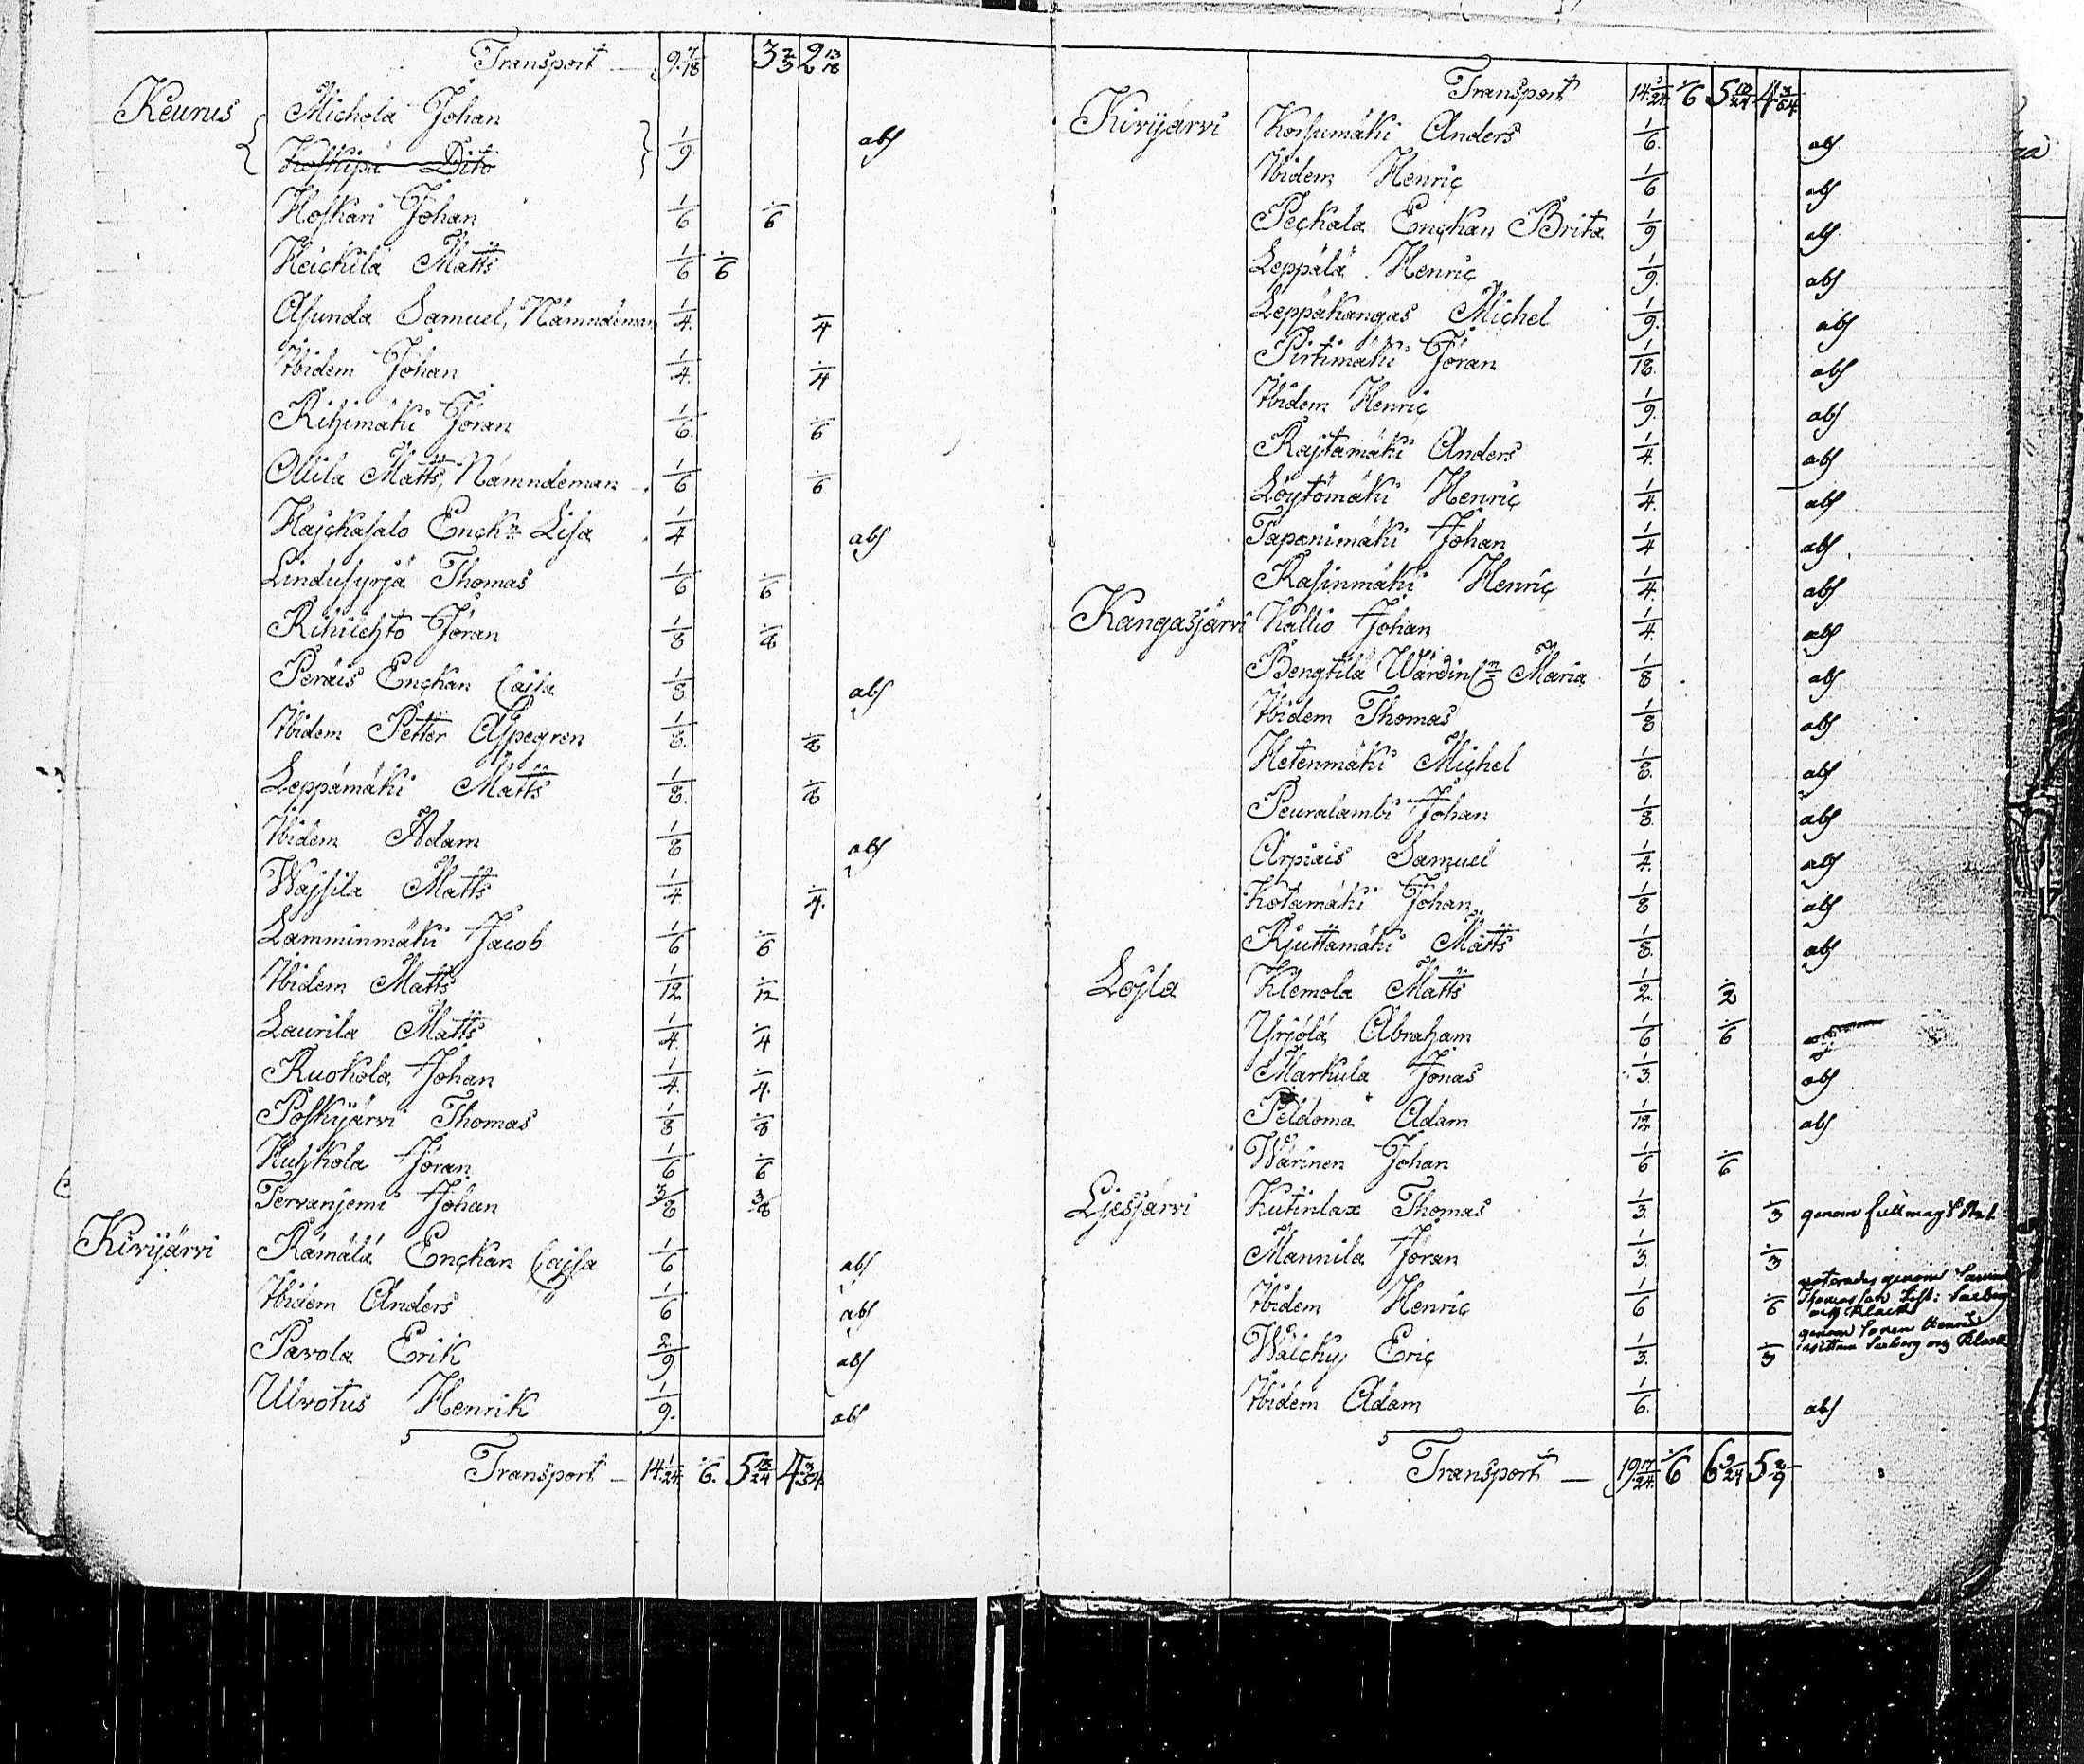 Transport — 9 7/18 3 2/3 2 13/18
Keurus Michola Johan
Koskipä Dito 1/9 abs
Hoskari Johan 1/6 1/6
Heickilä Matts 1/6 1/6
Asunda Samuel, Nämndeman 1/4 1/4
Ibidem Johan 1/4 1/4
Rihimäki Jöran 1/6 1/6
Ollila Matts, Nämndeman 1/6 1/6
Hajckasalo Enckn Lisa 1/4 abs
Lindusyrjä Thomas 1/6 1/6
Rihiichto Jöran 1/8 1/8
Peräis Enckan Cajsa 1/8 abs
Ibidem Petter Aspegren 1/8 1/8
Leppämäki Matts 1/8 1/8
Ibidem Adam 1/8 abs
Wajsila Matts 1/4 1/4
Lamminmäki Jacob 1/6 1/6
Ibidem Matts 1/12 1/12
Laurila Matts 1/4 1/4
Ruokola Johan 1/4 1/4
Poskijärvi Thomas 1/8 1/8
Huhkola Jöran 1/6 1/6
Tervanjemi Johan 3/8 3/8
Kivijärvi Rämälä Enckan Cajsa 1/6 abs
Ibidem Anders 1/6 abs
Pavola Erik 2/9 abs
Ulvotus Henrik 1/9 abs
Transport — 14 1/24 1/6 5 13/24
Transport 14 1/24 1/6
Kivijärvi Korsumäki Anders 1/6 abs
Ibidem Henric 1/6 abs
Peckala Enckan Brita 1/9 abs
Leppälä Henric 1/9 abs
Leppäkangas Michel 1/9 abs
Pirtimäki Jöran 1/18 abs
Ibidem Henric 1/9 abs
Rajtamäki Anders 1/4 abs
Löytömäki Henric 1/4 abs
Tapanimäki Johan 1/4 abs
Rasinmäki Henric 1/4 abs
Kangasjärvi Kallio Johan 1/4 abs
Bengtilä Maria 1/8 abs
Ibidem Thomas 1/8 abs
Hetenmäki Michel 1/8 abs
Peuralambi Johan 1/8 abs
Arpiais Samuel 1/4 abs
Kotamäki Johan 1/8 abs
Rjuttamäki Matts 1/8 abs
Löjla Klemola Matts 1/2 1/2
Yrjölä Abraham 1/6 1/6
Markula Jonas 1/3 abs
Peldoma Adam 1/12 abs
Wärinen Johan 1/6 1/6
Ljesjärvi Kutinlax Thomas 1/3 1/3 genom
Mannila Jöran 1/3 1/3
Ibidem Henric 1/6 1/6
Waicky Eric 1/3 1/3
Ibidem Adam 1/6 abs
Transport — 19 17/24 1/6 6 9/24 5 2/9